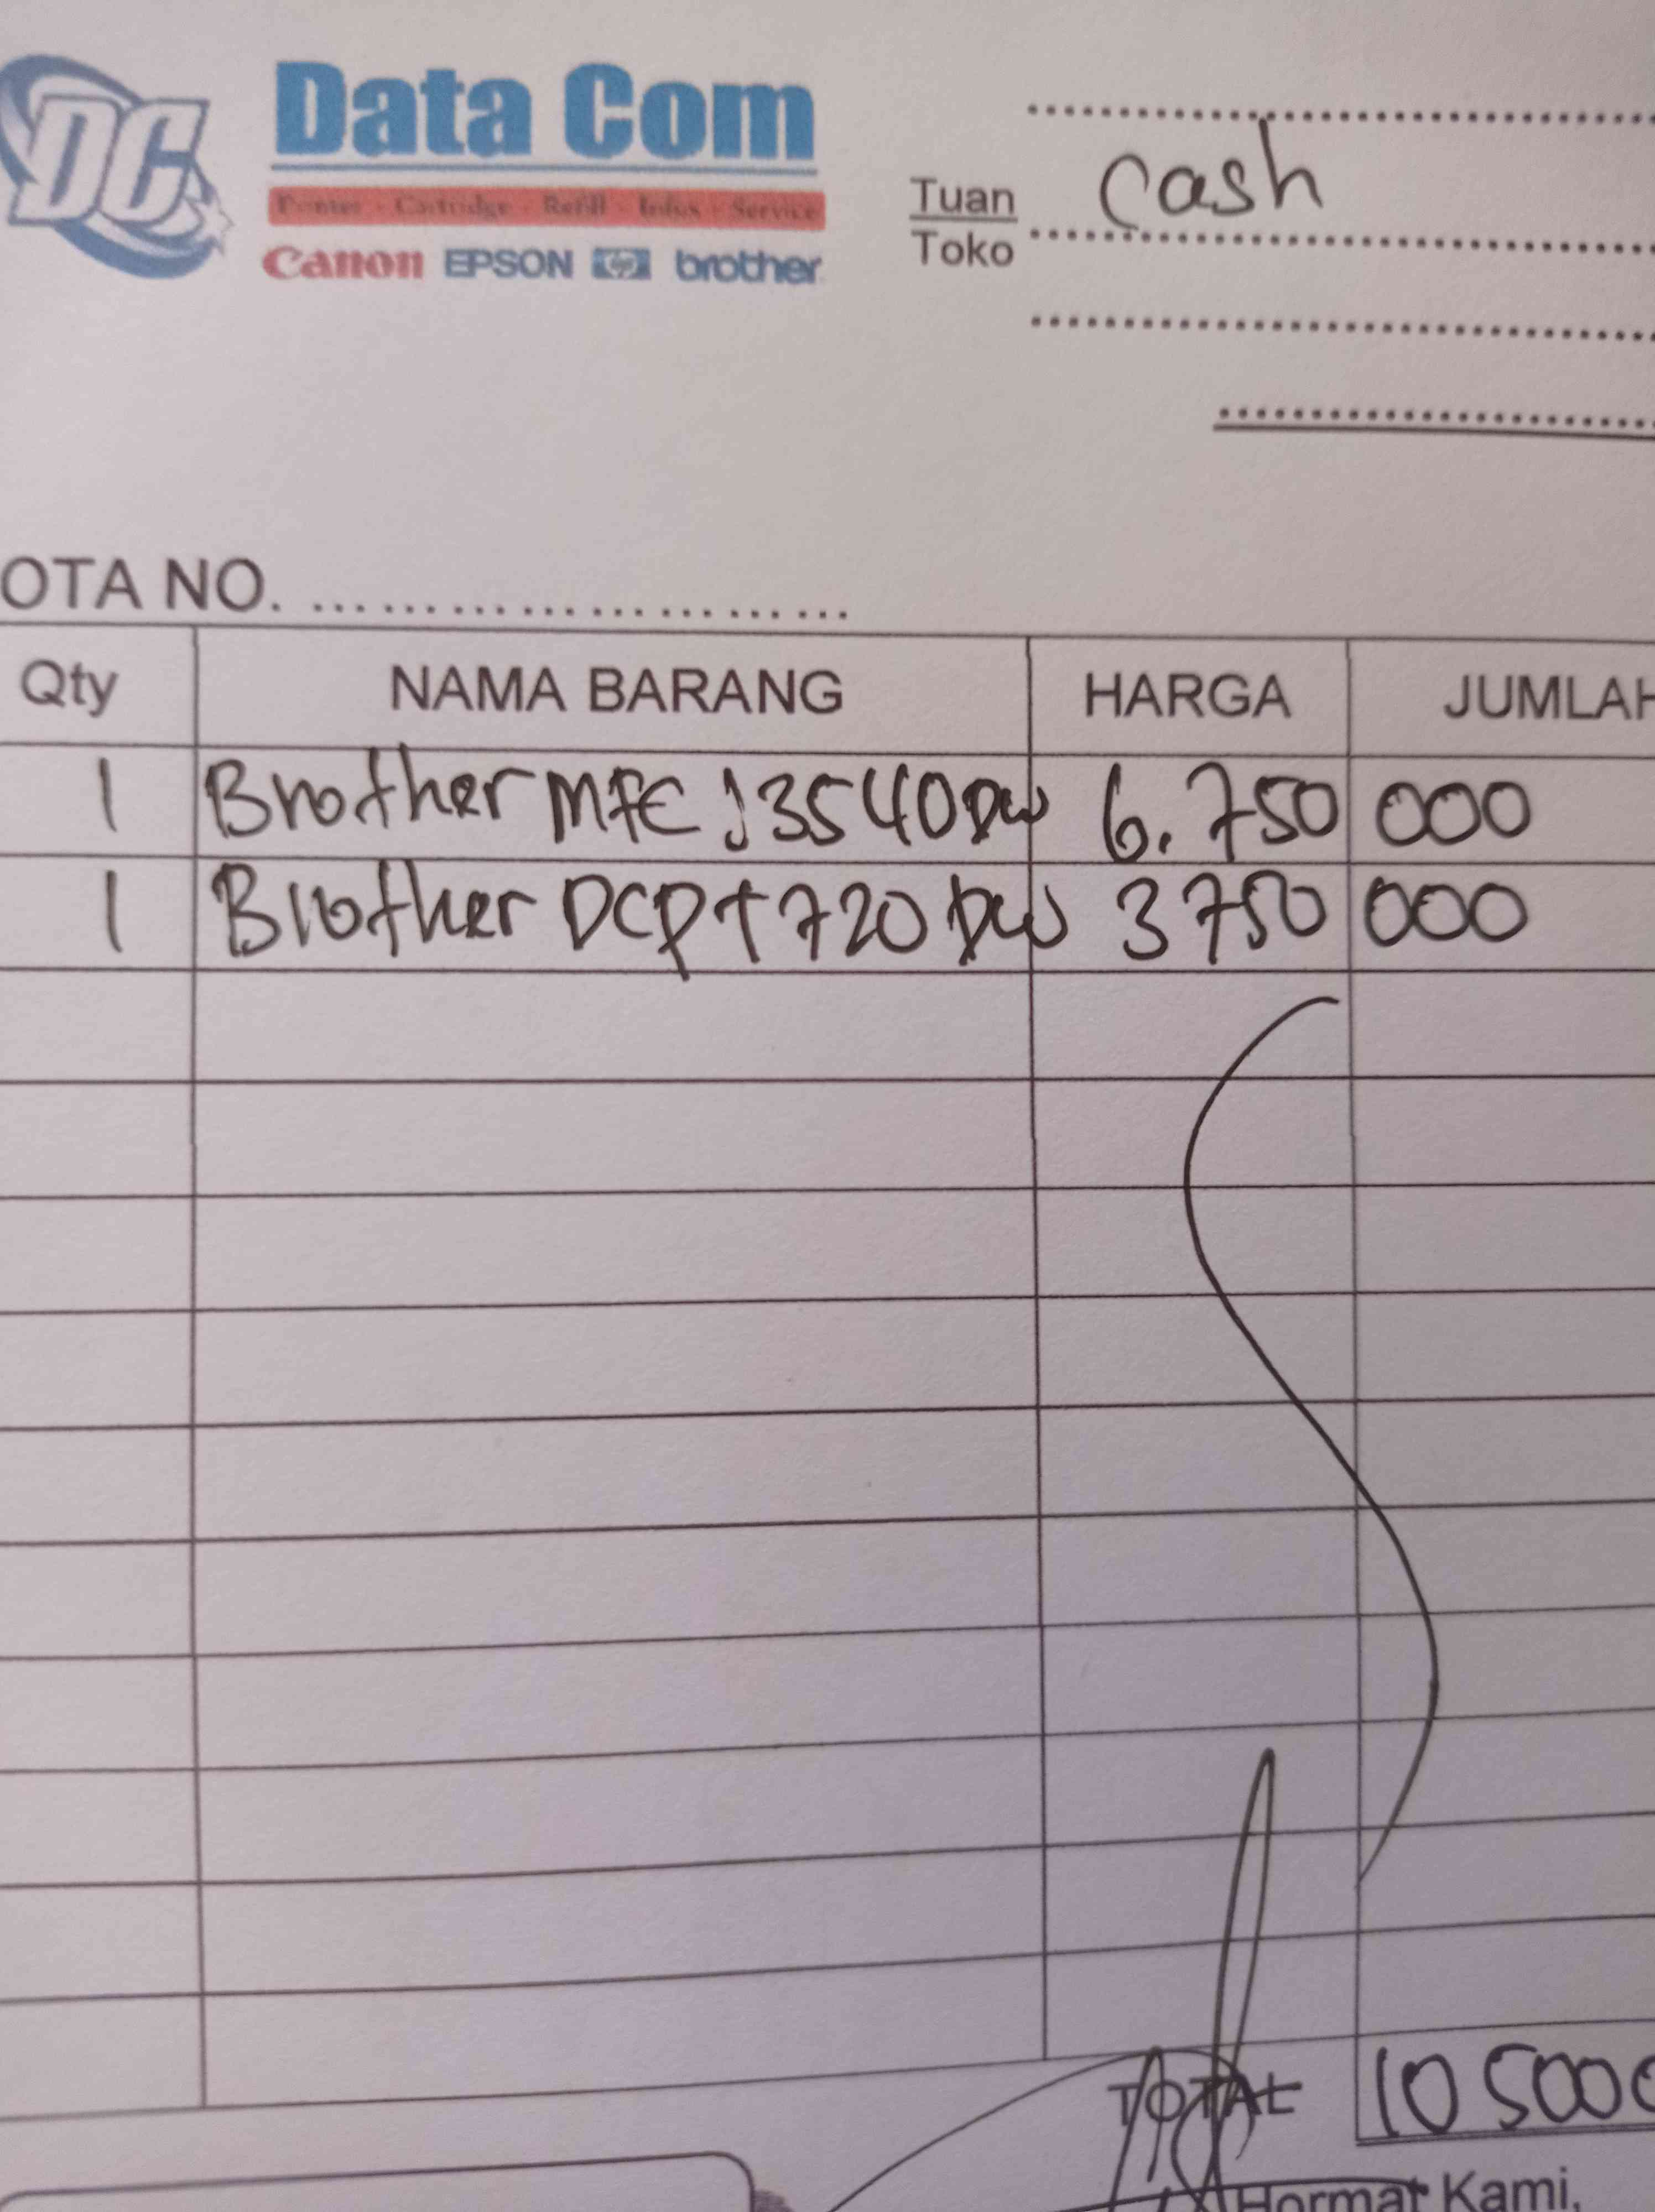 DC
Data Com
Printer - Cartridge - Refill - Infus - Service
Canon EPSON hp brother
Tuan
Toko
cash
OTA NO. ........................
Qty NAMA BARANG HARGA JUMLAH
1 Brother MFC J3540DW 6.750 000
1 Brother DCP T720 DW 3750 000
TOTAL 10 5000
Hormat Kami,